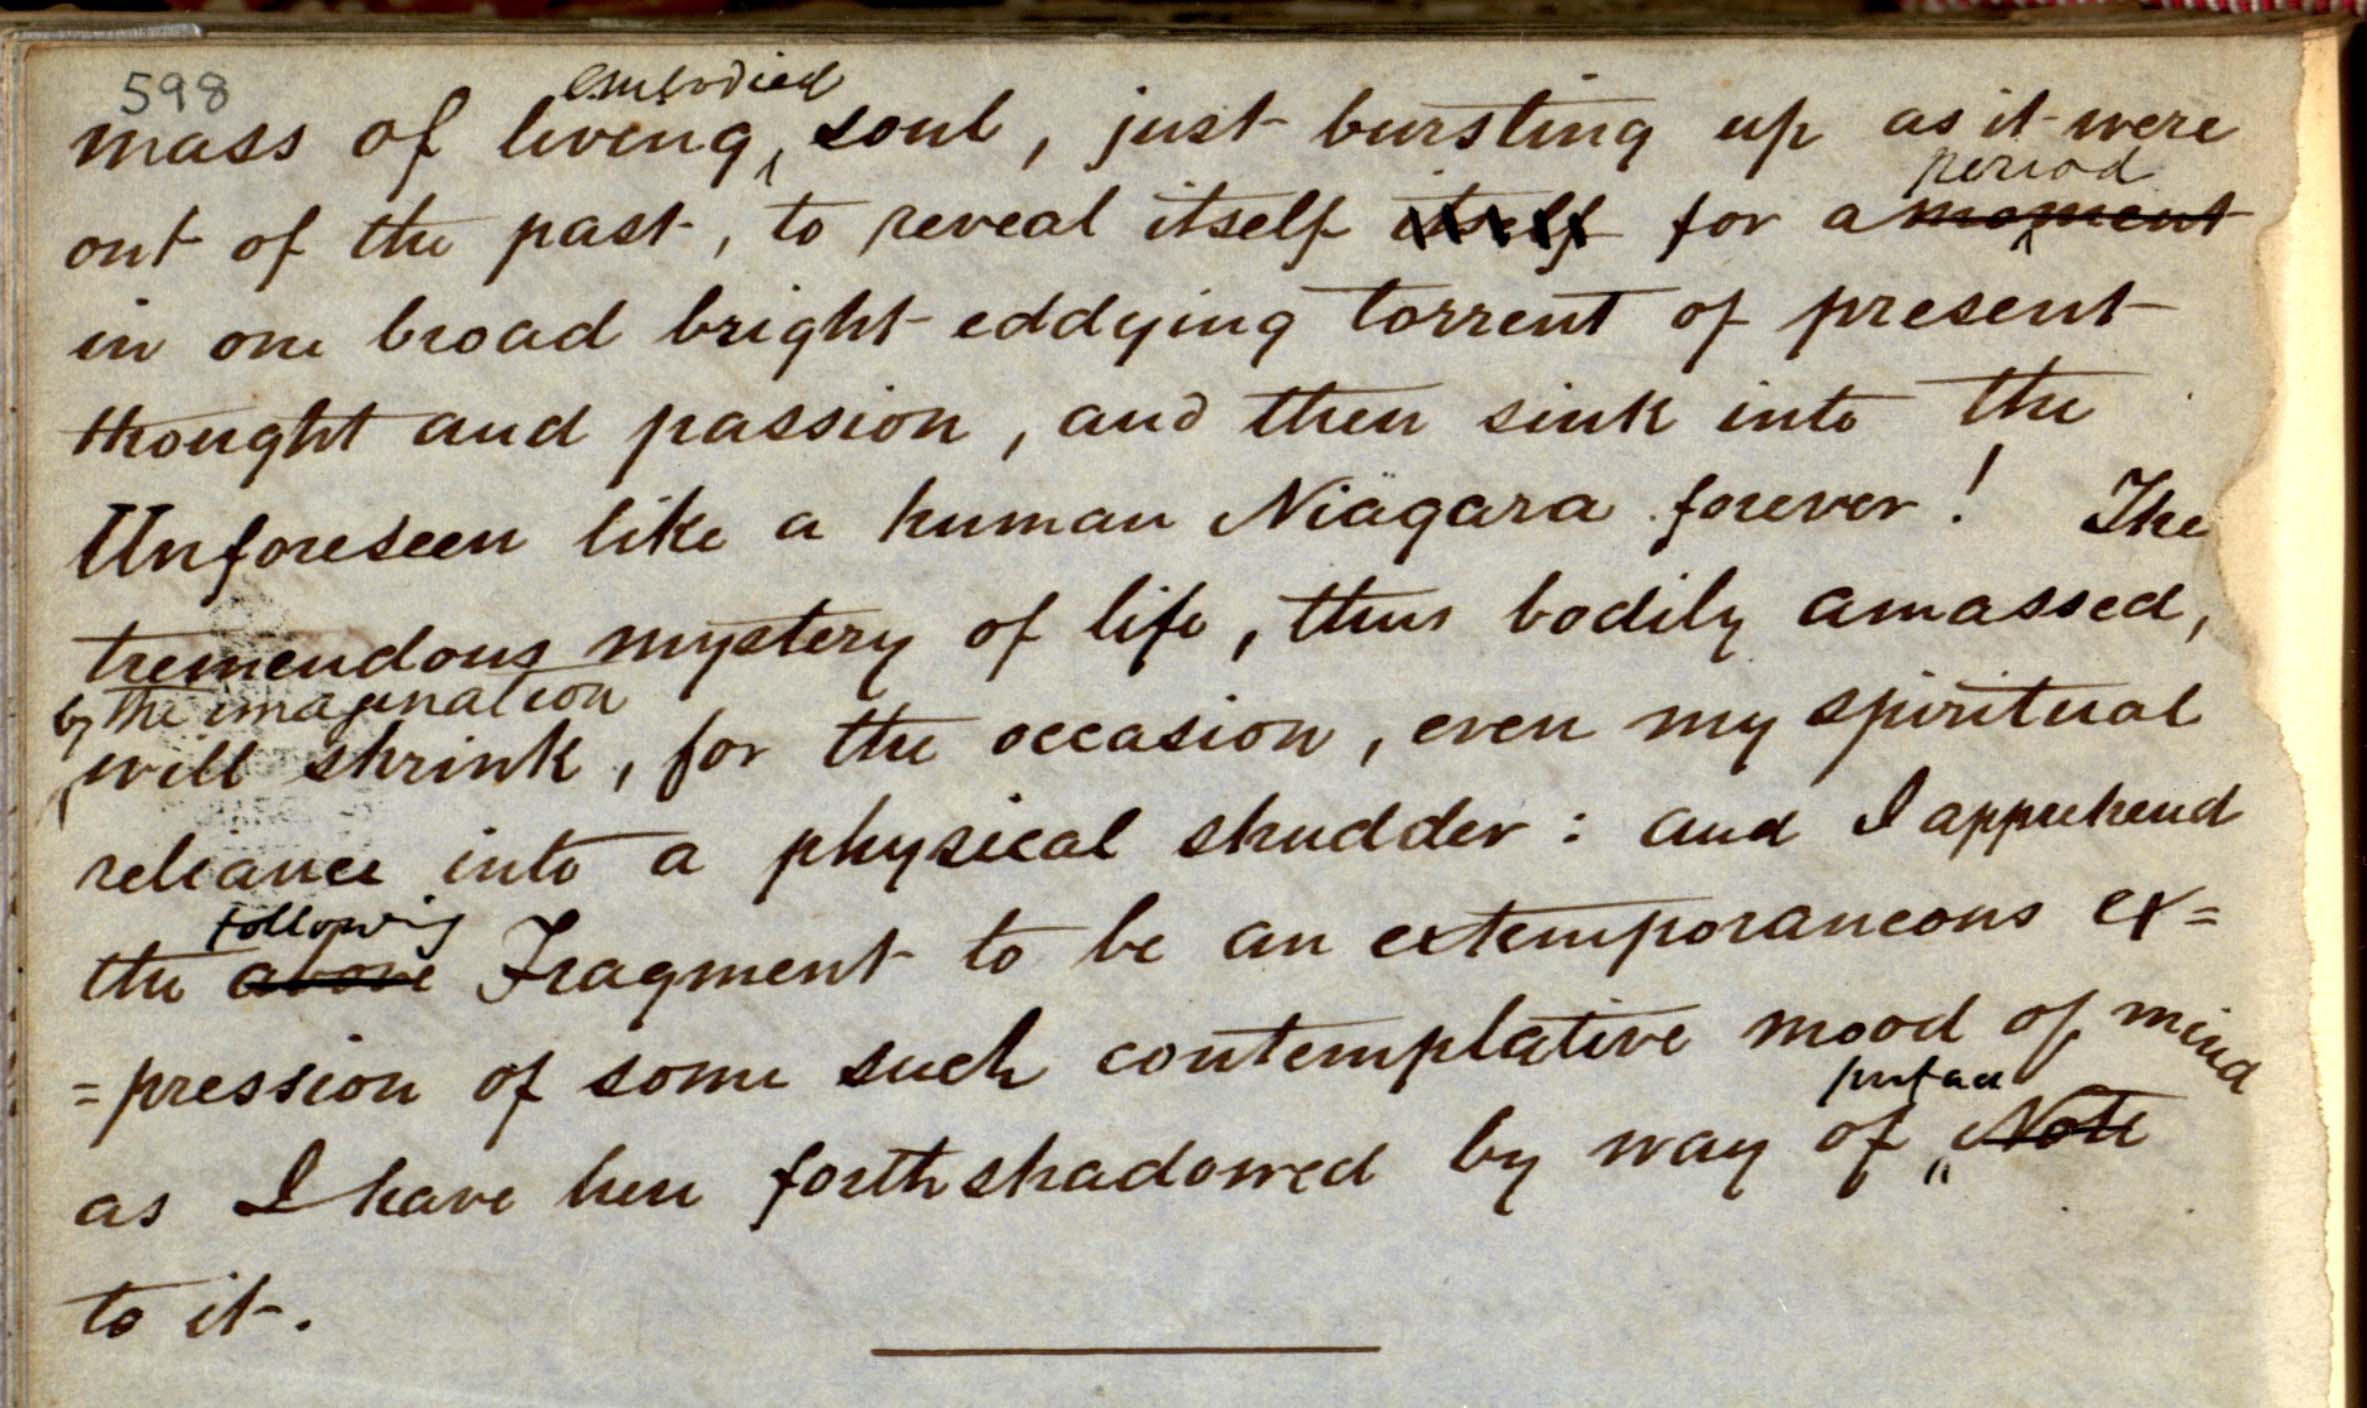 598
embodied
mass of living, soul, just bursting up as it were
period
out of the past, to reveal itself itself for a moment
in one broad bright eddying torrent of present
thought and passion, and then sink into the
Unforeseen like a human Niägara forever! The
tremendous mystery of life, thus bodily amassed,
by the imagination
will shrink, for the occasion, even my spiritual
reliance into a physical shudder: and I apprehend
following
the above Fragment to be an extemporaneous ex=
=pression of some such contemplative mood of mind
preface
as I have here forthshadowed by way of Note
to it.